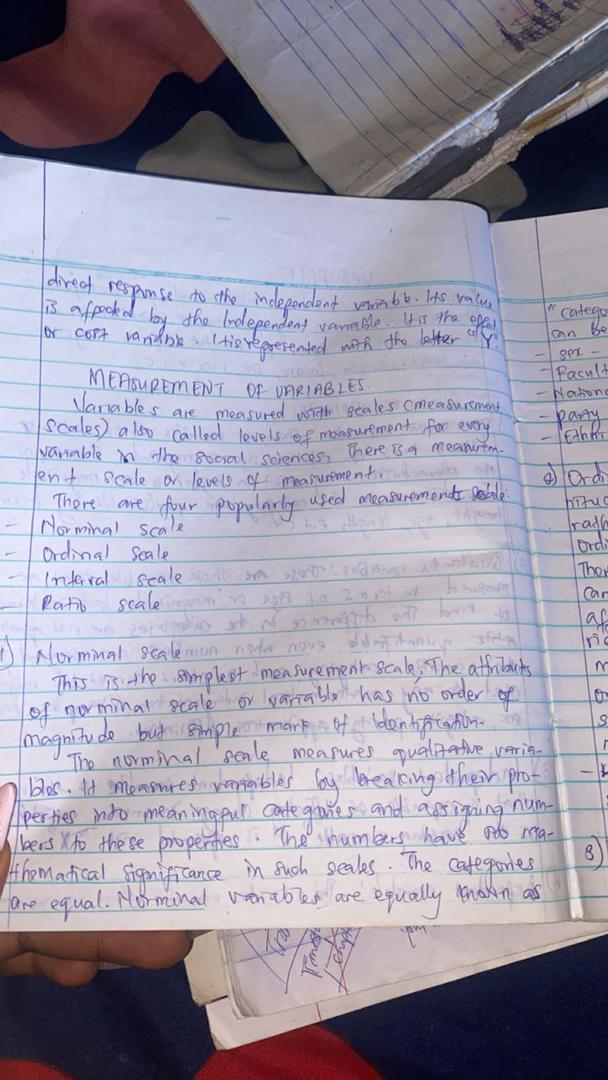 direct response to the independent variable. Its value
is affected by the Independent variable. It is the effect
or cost variable. It is represented with the letter "Y".
MEASUREMENT OF VARIABLES.
Variables are measured with scales (measurement
scales) also called levels of measurement for every
variable in the social sciences, there is a measurem-
ent scale or levels of measurement.
There are four popularly used measurement scale:
- Norminal scale
- Ordinal scale
- Interval scale
- Ratio scale
1) Norminal scale
This is the simplest measurement scale. The attributs
of norminal scale or variable has no order of
magnitude but simple mark of identification.
The norminal scale measures qualitative varia-
bles. It measures variables by breaking their pro-
perties into meaningful categories and assigning num-
bers to these properties. The numbers have no ma-
thematical significance in such scales. The categories
are equal. Norminal variables are equally known as
"catego
can be
- sex -
- Facult
- Nation
- party
- Ethn
2) Ordi
rath
ordi
Ther
can
3)